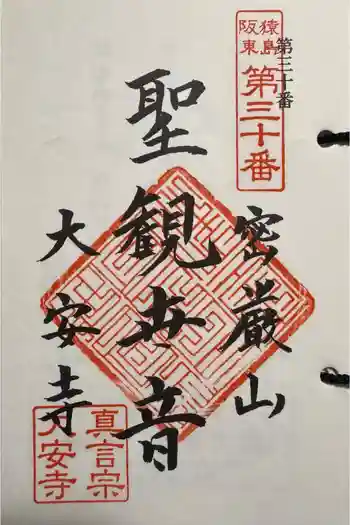 第三十番
猿島
阪東
第三十番
密巌山
聖観世音
大安寺
真言宗
大安寺